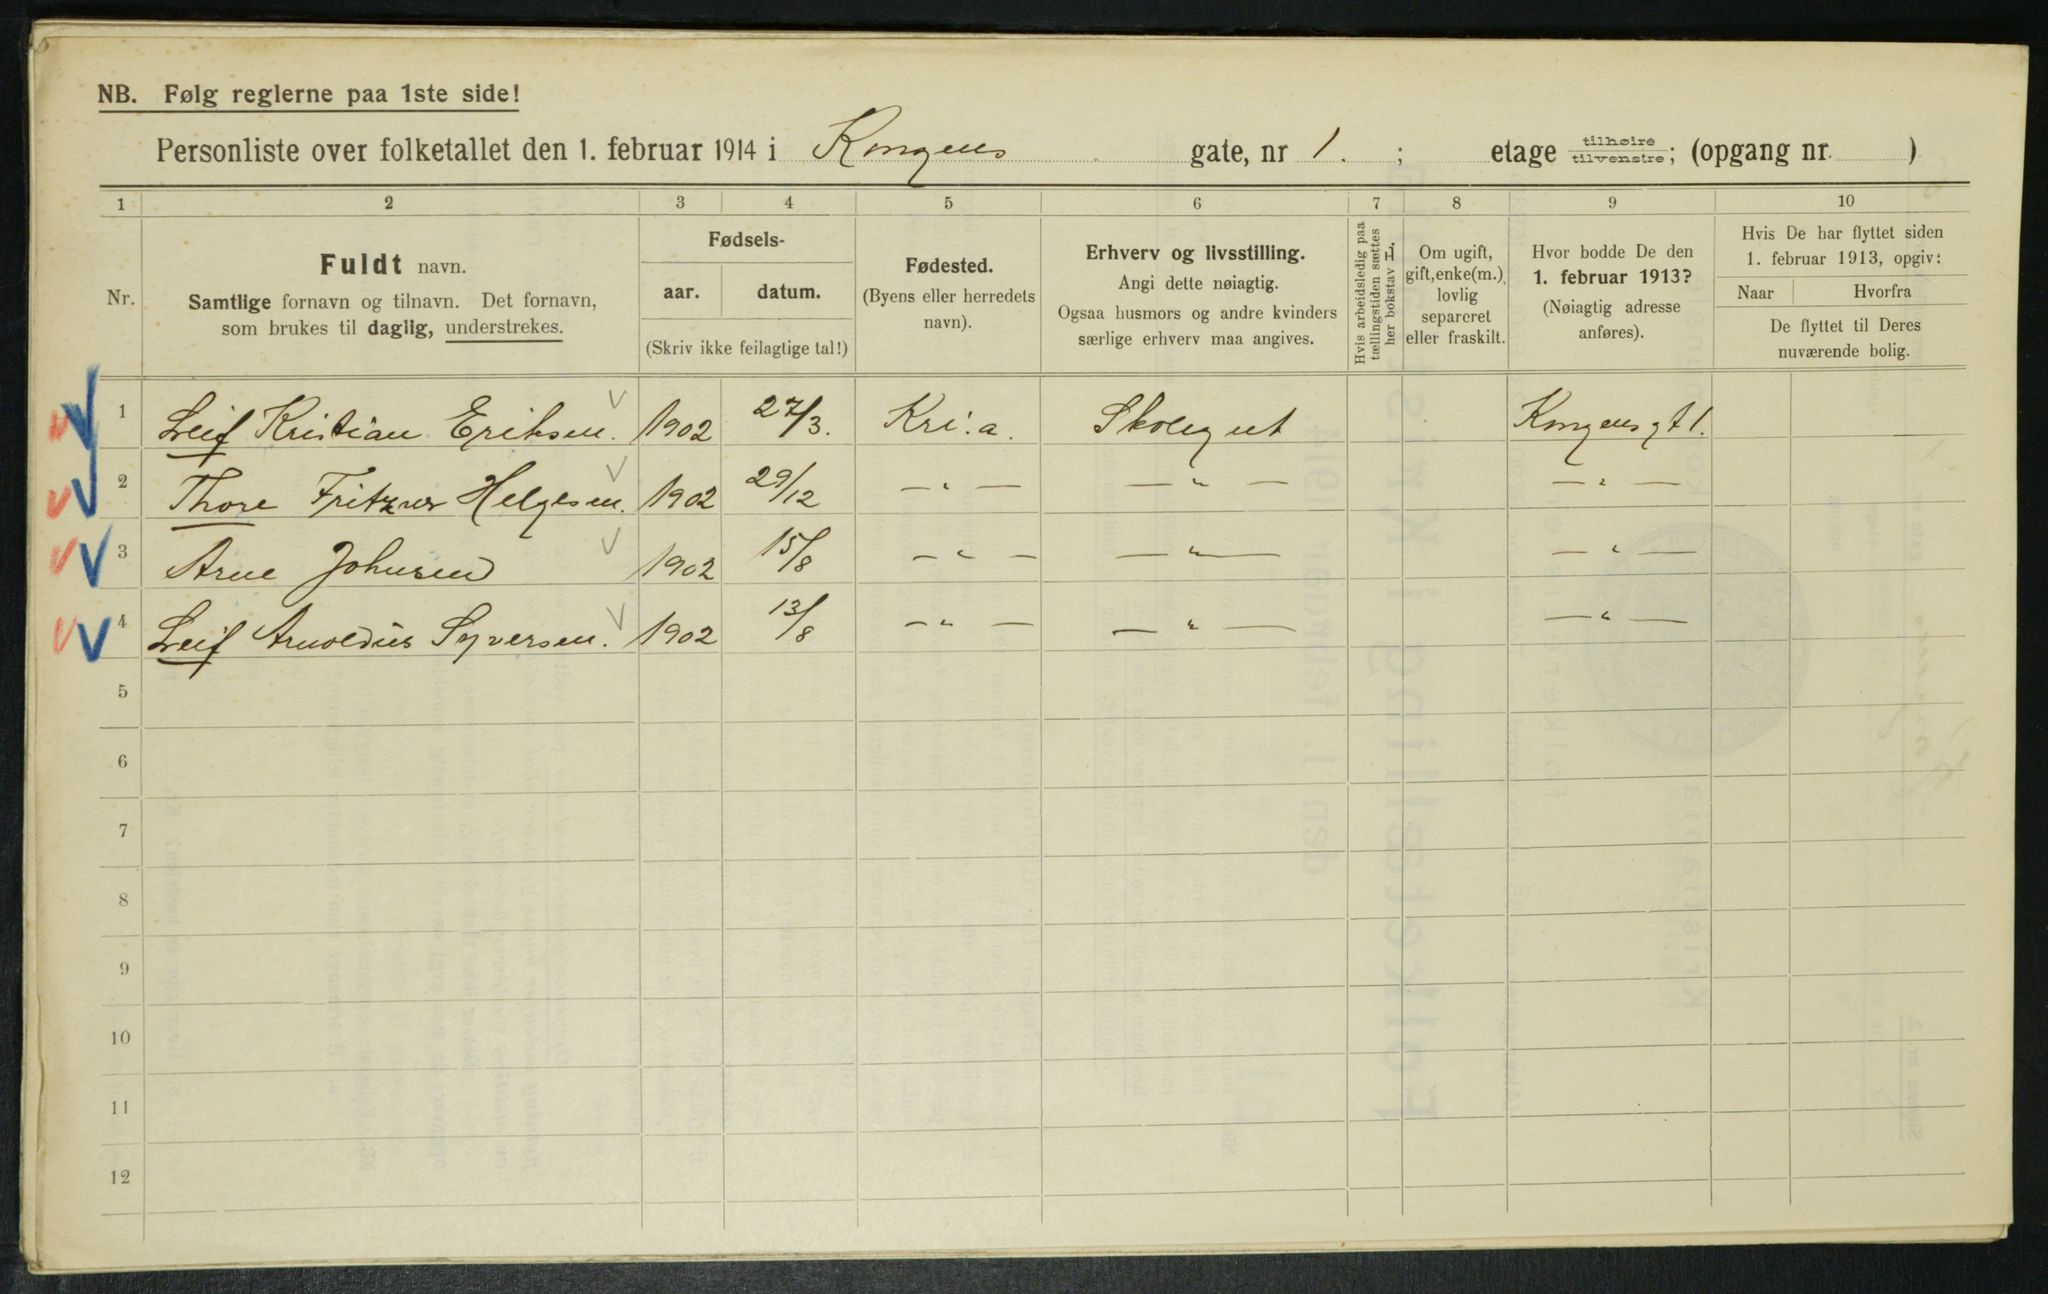 NB. Følg reglerne paa 1ste side!
Personliste over folketallet den 1. februar 1914 i Kongens gate, nr 1. ; etage tilhøire tilvenstre; (opgang nr. )
1 2 3 4 5 6 7 8 9 10
Nr.
Fuldt navn.
Samtlige fornavn og tilnavn. Det fornavn,
som brukes til daglig, understrekes.
Fødsels-
aar. datum.
(Skriv ikke feilagtige tal!)
Fødested.
(Byens eller herredets
navn).
Erhverv og livsstilling.
Angi dette nøiagtig.
Ogsaa husmors og andre kvinders
særlige erhverv maa angives.
Hvis arbeidsledig paa
tællingstiden sættes
her bokstav L.
Om ugift,
gift, enke(m.),
lovlig
separeret
eller fraskilt.
Hvor bodde De den
1. februar 1913?
(Nøiagtig adresse
anføres).
Hvis De har flyttet siden
1. februar 1913, opgiv:
Naar Hvorfra
De flyttet til Deres
nuværende bolig.
1 Leif Kristian Eriksen. 1902 27/3. Kri.a. Skolegut Kongensgt 1.
2 Thore Fritzner Helgesen. 1902 29/12 — " — — " — — " —
3 Arne Johnsen 1902 15/8 — " — — " — — " —
4 Leif Arnoldus Syversen. 1902 13/8 — " — — " — — " —
5
6
7
8
9
10
11
12